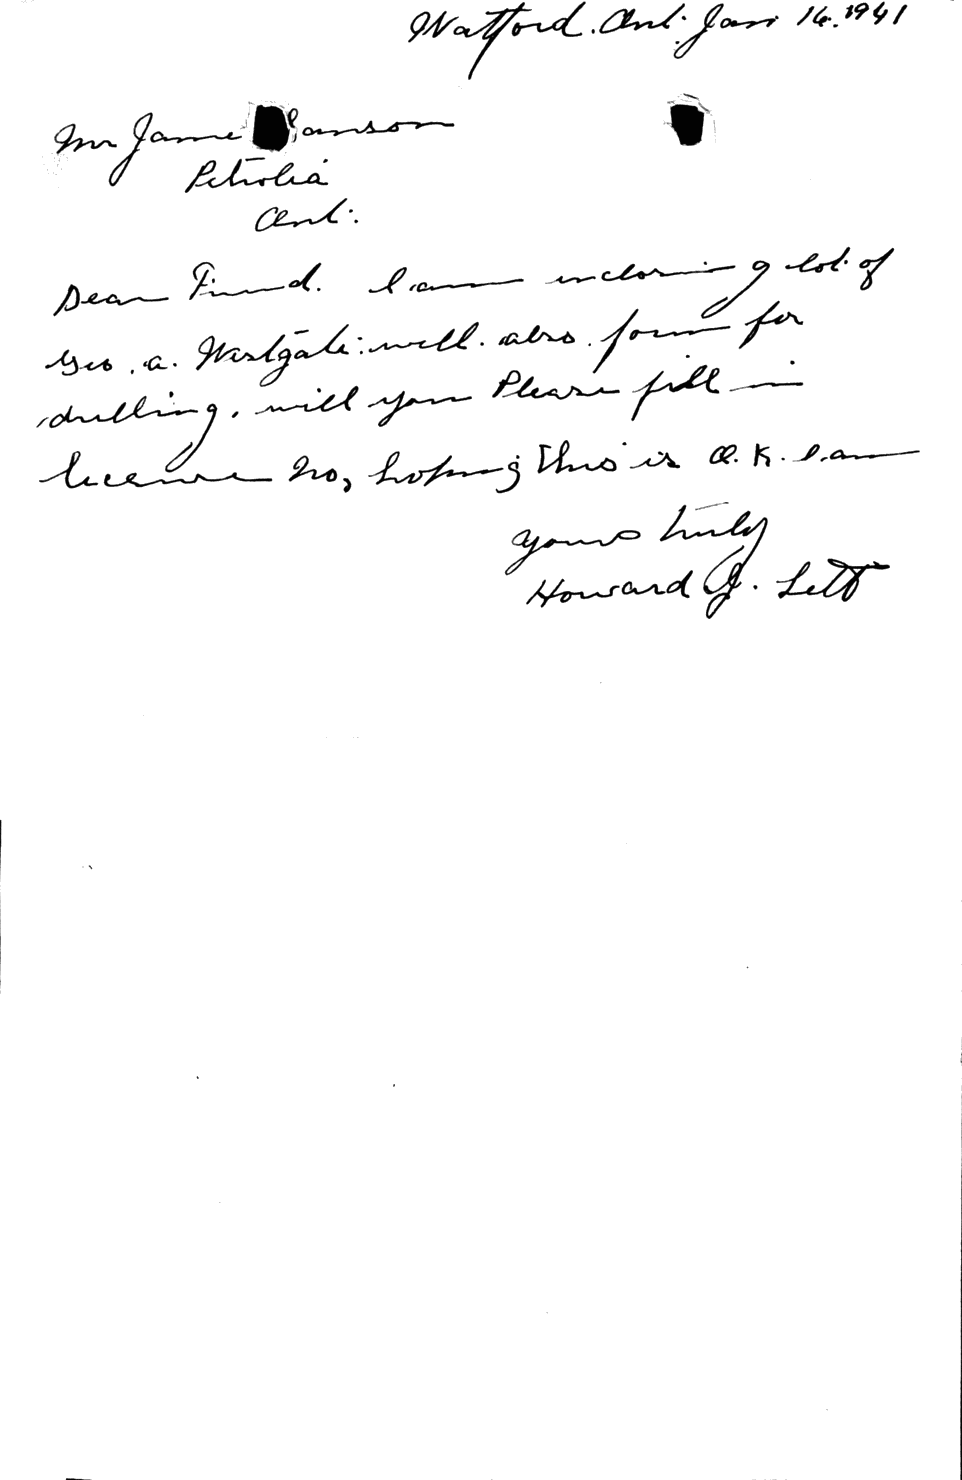 Watford. Ont. Jan 16. 1941
Mr Jame anson
Petrolia
Ont.
Dear Friend. I am inclosing lot of
Geo. A. Westgate well. also form for
drilling, will you Please fill in
licence No, hoping this is O.K. I am
yours truly
Howard J. Lett